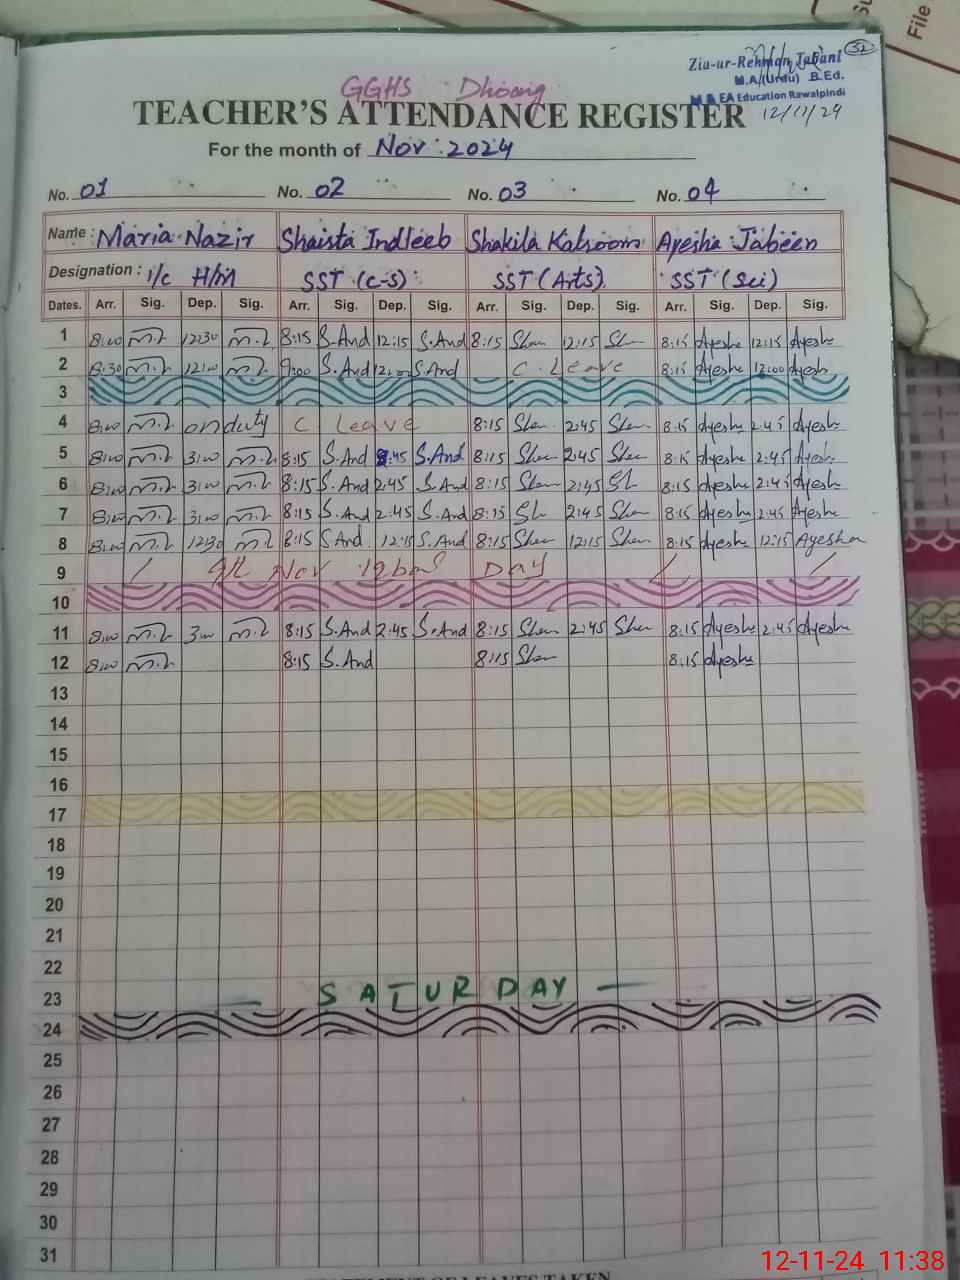 File
32
Zia-ur-Rehman Tabani
M.A (Urdu) B.Ed.
M & EA Education Rawalpindi
12/11/24
GGHS Dhoong
TEACHER'S ATTENDANCE REGISTER
For the month of Nov 2024
No. 01 No. 02 No. 03 No. 04
Name : Maria Nazir Shaista Indleeb Shakila Kalsoom Ayesha Jabeen
Designation : I/c H/m SST (C-S) SST (Arts) SST (Sci)
Dates. Arr. Sig. Dep. Sig. Arr. Sig. Dep. Sig. Arr. Sig. Dep. Sig. Arr. Sig. Dep. Sig.
1 8:00 12:30 8:15 S.And 12:15 S.And 8:15 Sha 12:15 Sha 8:15 Ayesha 12:15 Ayesha
2 8:30 12:00 9:00 S.And 12:00 S.And C. Leave 8:15 Ayesha 12:00 Ayesh
3
4 8:00 on duty C Leave 8:15 Sha 2:45 Sha 8:15 Ayesha 2:45 Ayesha
5 8:00 3:00 8:15 S.And 2:45 S.And 8:15 Sha 2:45 Sha 8:15 Ayesha 2:45 Ayesh
6 8:00 3:00 8:15 S.And 2:45 S.And 8:15 Sha 2:45 Sh 8:15 Ayesha 2:45 Ayesh
7 8:00 3:00 8:15 S.And 2:45 S.And 8:15 Sh 2:45 Sha 8:15 Ayesha 2:45 Ayesha
8 8:00 12:30 8:15 S.And 12:15 S.And 8:15 Sha 12:15 Sha 8:15 Ayesha 12:15 Ayesha
9 9th Nov Iqbal Day
10
11 8:00 3:00 8:15 S.And 2:45 S.And 8:15 Sha 2:45 Sha 8:15 Ayesha 2:45 Ayesha
12 8:00 8:15 S.And 8:15 Sha 8:15 Ayesha
13
14
15
16
17
18
19
20
21
22
23 SATURDAY
24
25
26
27
28
29
30
31
12-11-24 11:38